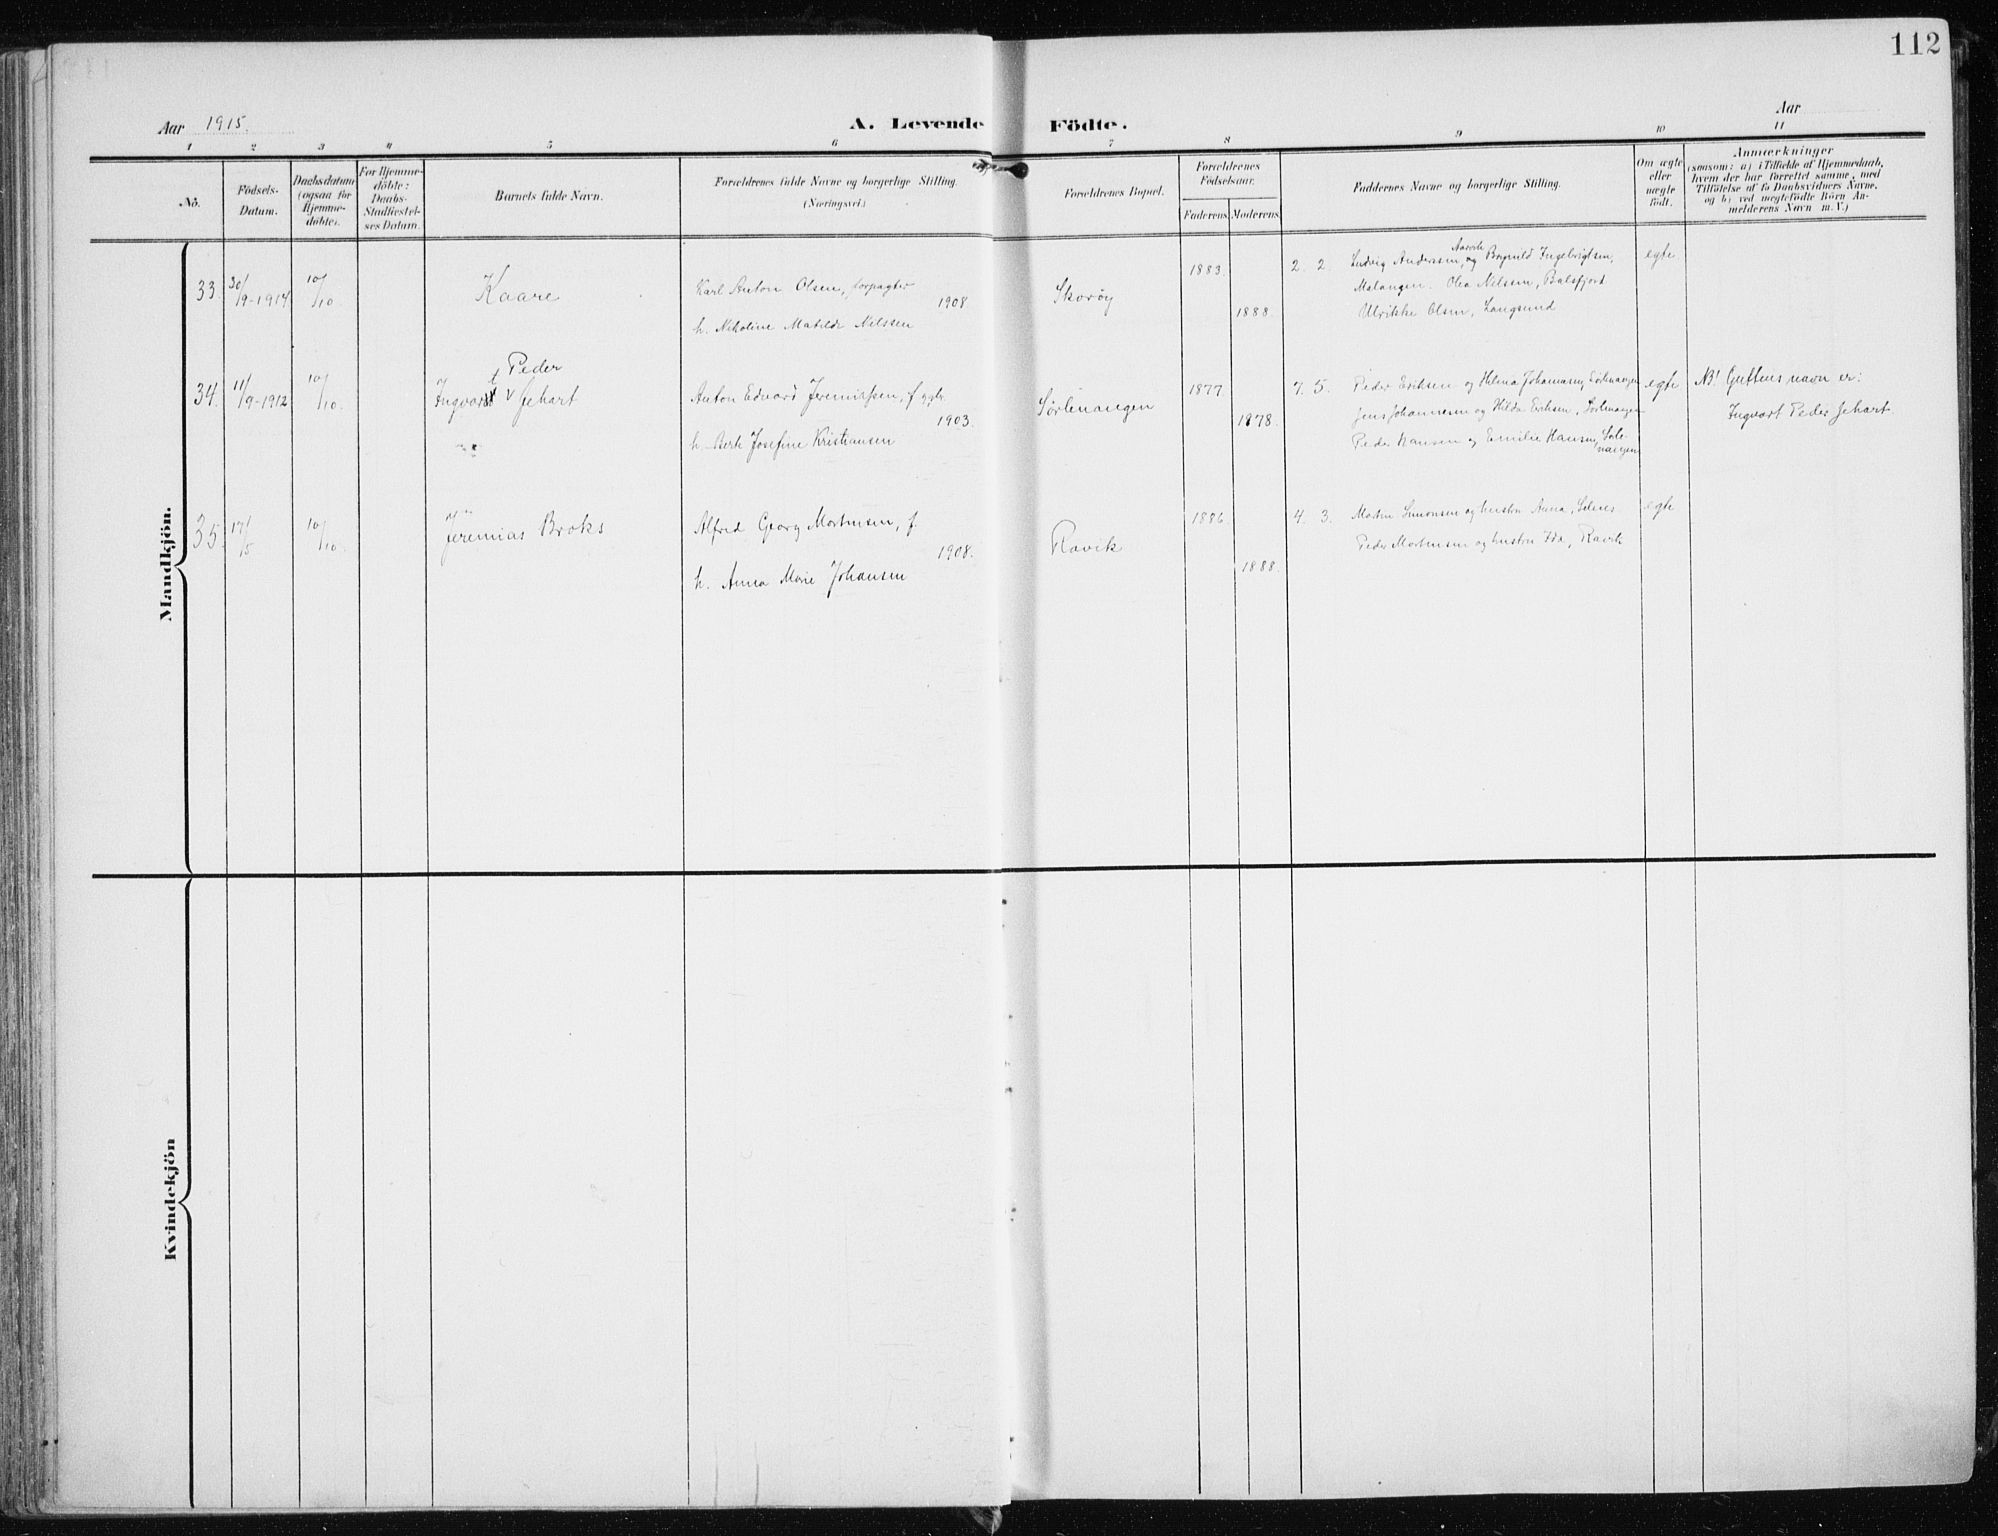 112
Aar 1915.
A. Levende Födte.
Aar
1 2 3 4 5 6 7 8 9 10 11
No.
Födsels-
Datum.
Daabsdatum
(ogsaa for
Hjemme-
döbte).
For Hjemme-
döbte:
Daabs-
Stadfæstel-
ses Datum.
Barnets fulde Navn.
Forældrenes fulde Navne og borgerlige Stilling.
(Næringsvei.)
Forældrenes Bopæl.
Forældrenes
Födselsaar.
Faderens. Moderens.
Faddernes Navne og borgerlige Stilling.
Om ægte
eller
uægte
födt.
Anmærkninger
(saasom: a) i Tilfælde af Hjemmedaab,
hvem der har forrettet samme, med
Tilföielse af to Daabsvidners Navne,
og b) ved uægtefödte Börn An-
melderens Navn m. V.)
Mandkjön.
33. 30/9-1914 10/10 Kaare
Karl Anton Olsen, forpagter
h. Nikoline Matilde Nilssen
1908
Skorøy
1883
1888.
2. 2.
Ludvig Andersen, og Bogmild Ingebrigtsen,
Malangen. Olea Nilssen, Balsfjord
Ulrikke Olsen, Langsund
egte
34. 11/9-1912 10/10.
Peder
Ingvart v Jehart
Anton Edvard Jeremiassen, f.
h. Berte Josefine Kristiansen
1903.
Sørlenangen
1877
1878.
7. 5.
Peder Eriksen og Helma Johannesen, Sørlenangen
Jens Johannesen og Hilda Eriksen, Sørlenangen
Peder Hansen og Emilie Hansen, Sørle-
nangen
egte
NB! Guttens navn er:
Ingvart Peder Jehart.
35. 17/5 10/10.
Jeremias Broks
Alfred Georg Mortensen, f.
h. Anna Marie Johansen
1908.
Ravik
1886.
1888.
4. 3.
Martin Simonsen og hustru Anna,
Peder Mortensen og hustru Ida, Ravik
egte
Kvindekjön